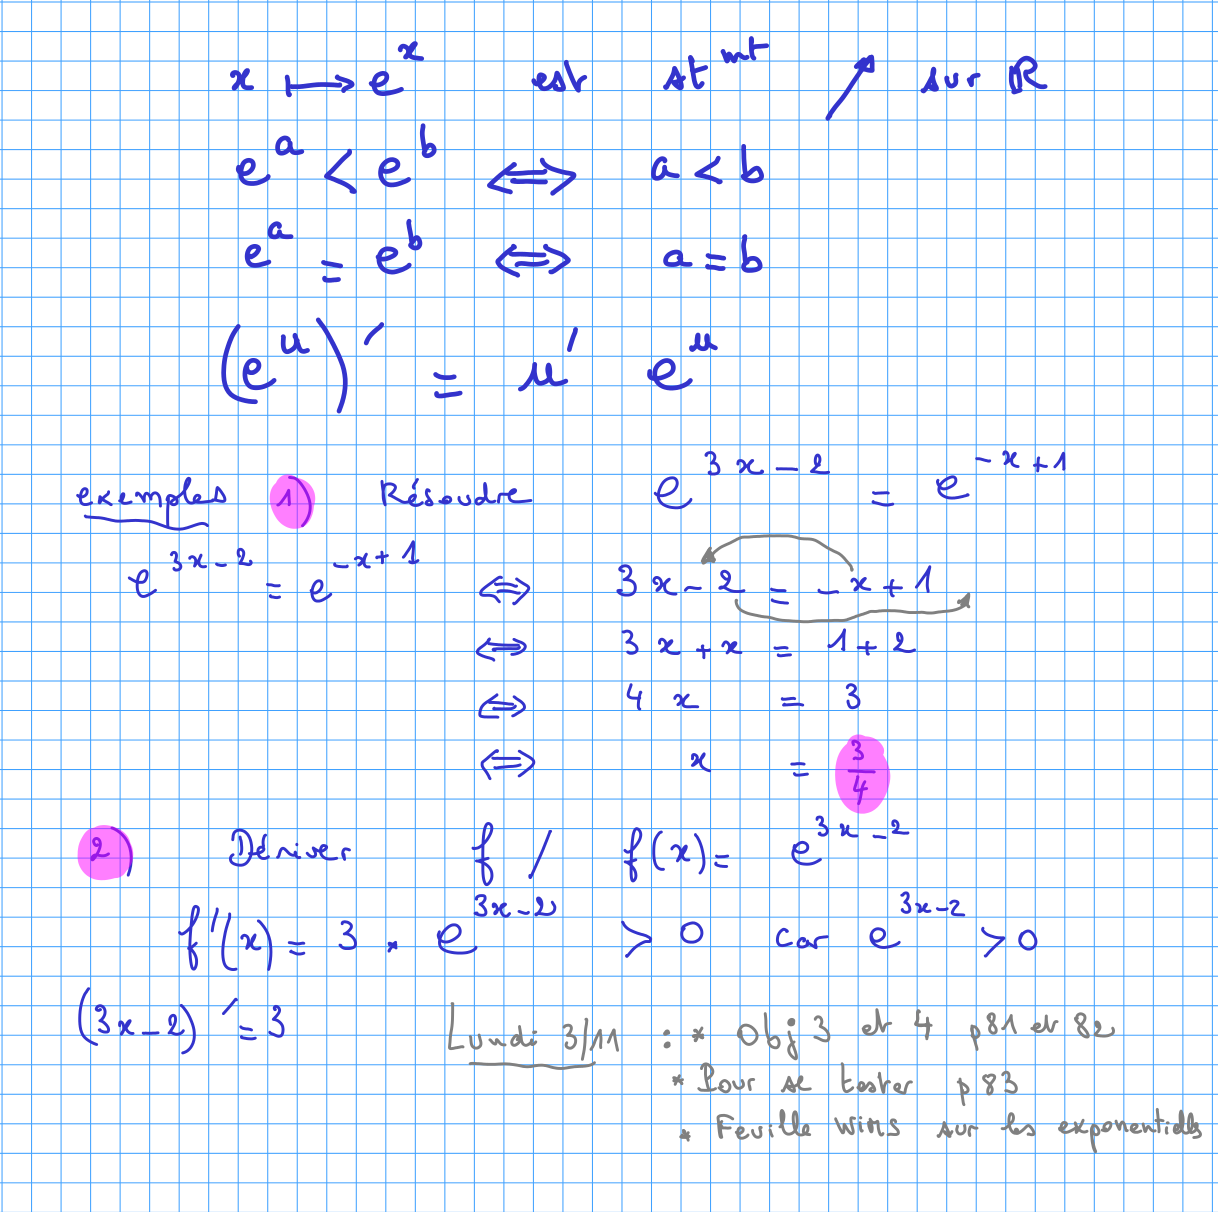 x ⟼ e^x est st^mt ↗ sur ℝ
e^a < e^b ⟺ a < b
e^a = e^b ⟺ a = b
(e^u)' = u' e^u
exemples 1) Résoudre e^{3x-2} = e^{-x+1}
e^{3x-2} = e^{-x+1} ⟺ 3x-2 = -x+1
⟺ 3x+x = 1+2
⟺ 4x = 3
⟺ x = 3/4
2) Dériver f / f(x) = e^{3x-2}
f'(x) = 3 * e^{3x-2} > 0 car e^{3x-2} > 0
(3x-2)' = 3
Lundi 3/11 : * Obj 3 et 4 p81 et 82
* Pour se tester p 83
* Feuille wims sur les exponentielles